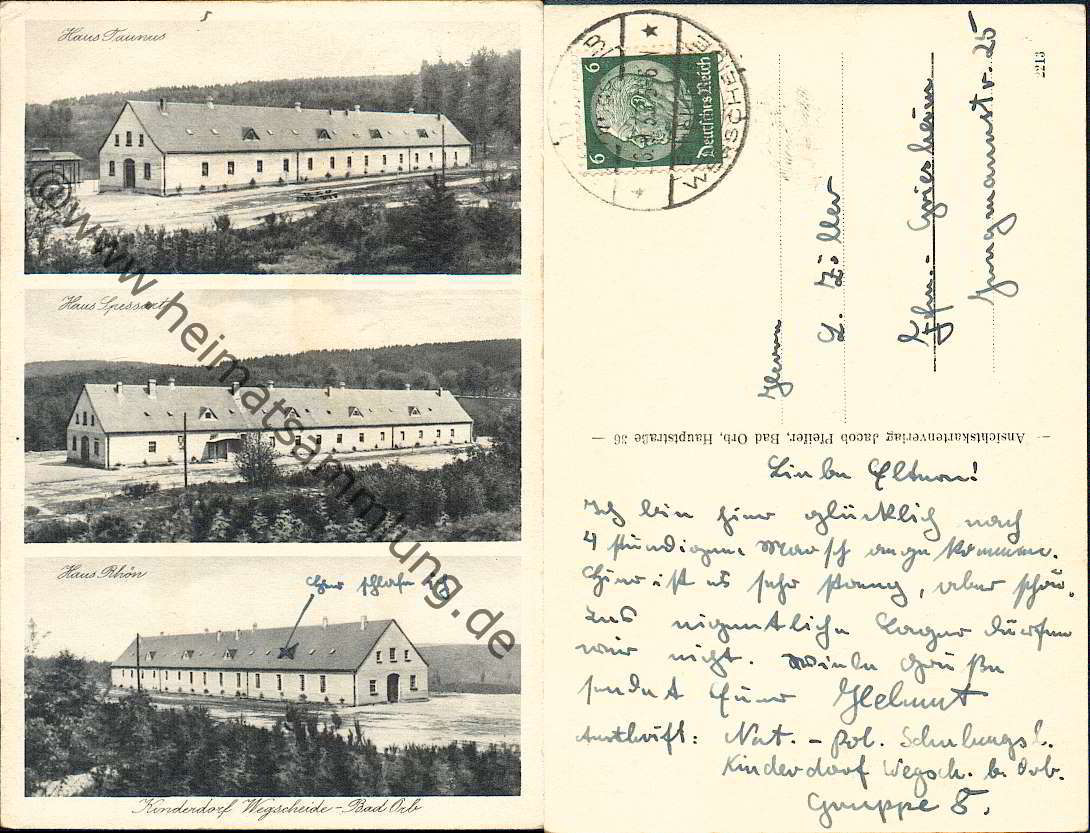 Haus Taunus
Haus Spessart
Haus Rhön
Hier schlafe ich
Kinderdorf Wegscheide - Bad Orb
@www.heimatsammlung.de
6 6
Deutsches Reich
WEGSCHEIDE
2213
Herrn
L. Zöller
Ffm.-Griesheim
Jungmannstr. 25
— Ansichtskartenverlag Jacob Pfeifer, Bad Orb, Hauptstraße 36 —
Liebe Eltern!
Ich bin hier glücklich nach
4 stündigem Marsch angekommen.
Hier ist es sehr streng, aber schön.
Ins eigentliche Lager dürfen
wir nicht. Viele Grüße
sendet Euer Helmut
Anschrift: Nat. - pol. Schulungsl.
Kinderdorf Wegsch. b. Orb.
Gruppe 8.